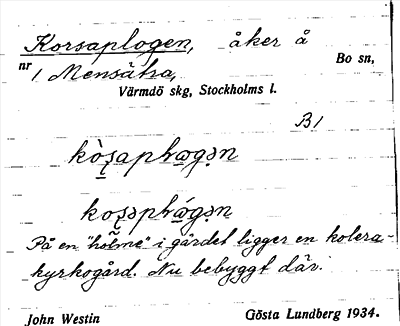 Korsaplogen, åker å
nr 1 Mensätra, Bo sn,
Värmdö skg, Stockholms l.
B1
På en "holme" i gärdet ligger en kolera-
kyrkogård. Nu bebyggt där.
John Westin Gösta Lundberg 1934.